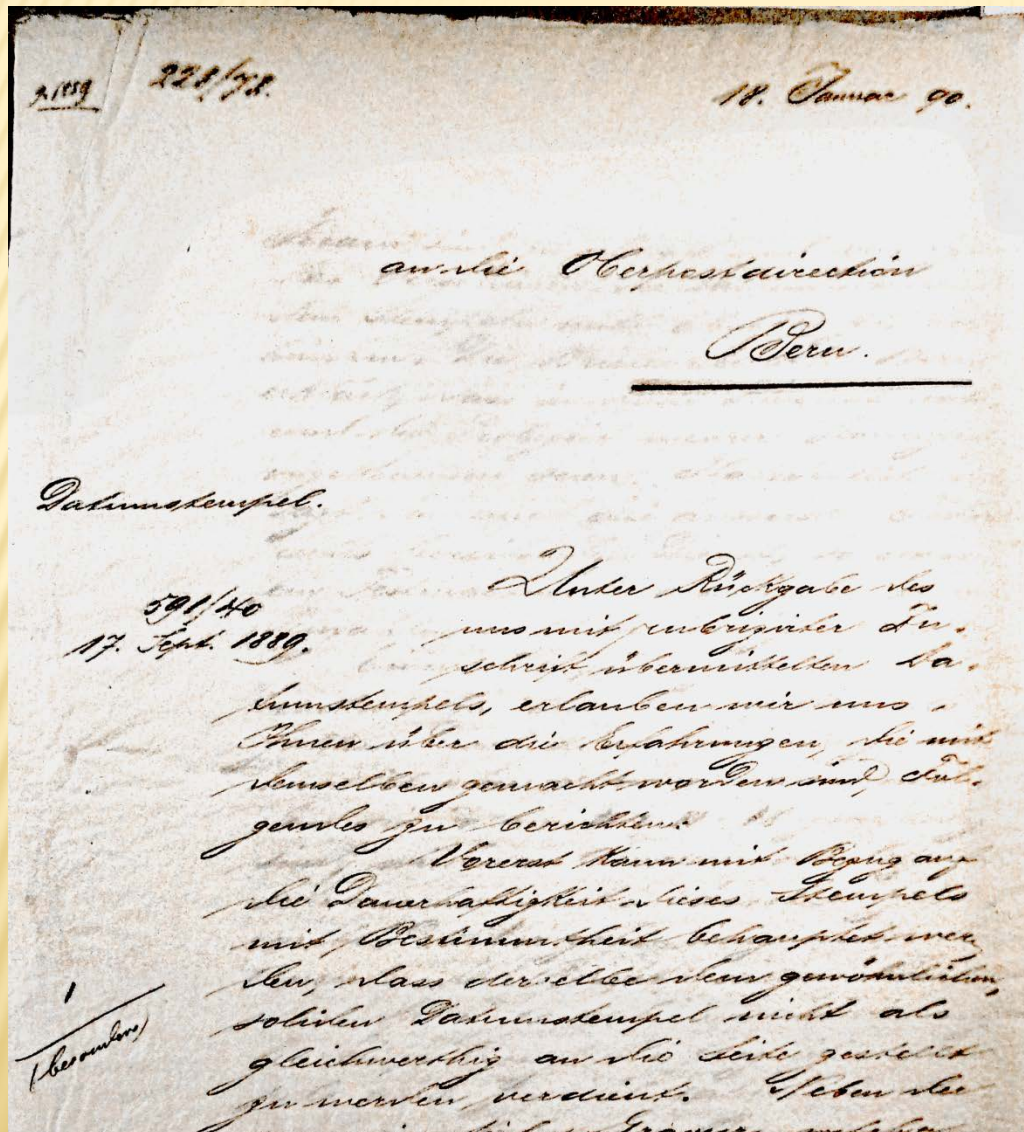 228/78.
18. Januar 90.
an die Oberpostdirection
Bern.
Datumstempel.
591/40
17. Sept. 1889.
Unter Rückgabe des
uns mit rubrizirter Zu-
schrift übermittelten Da-
tumstempels, erlauben wir uns,
Ihnen über die Erfahrungen, die mit
demselben gemacht worden sind, Fol-
gendes zu berichten.
Vorerst kann mit Bezug auf
die Dauerhaftigkeit dieses Stempels
mit Bestimmtheit behauptet wer-
den, dass derselbe dem gewöhnlichen,
soliden Datumstempel nicht als
gleichwerthig an die Seite gestellt
zu werden verdient. Neben der
Gravur, welche